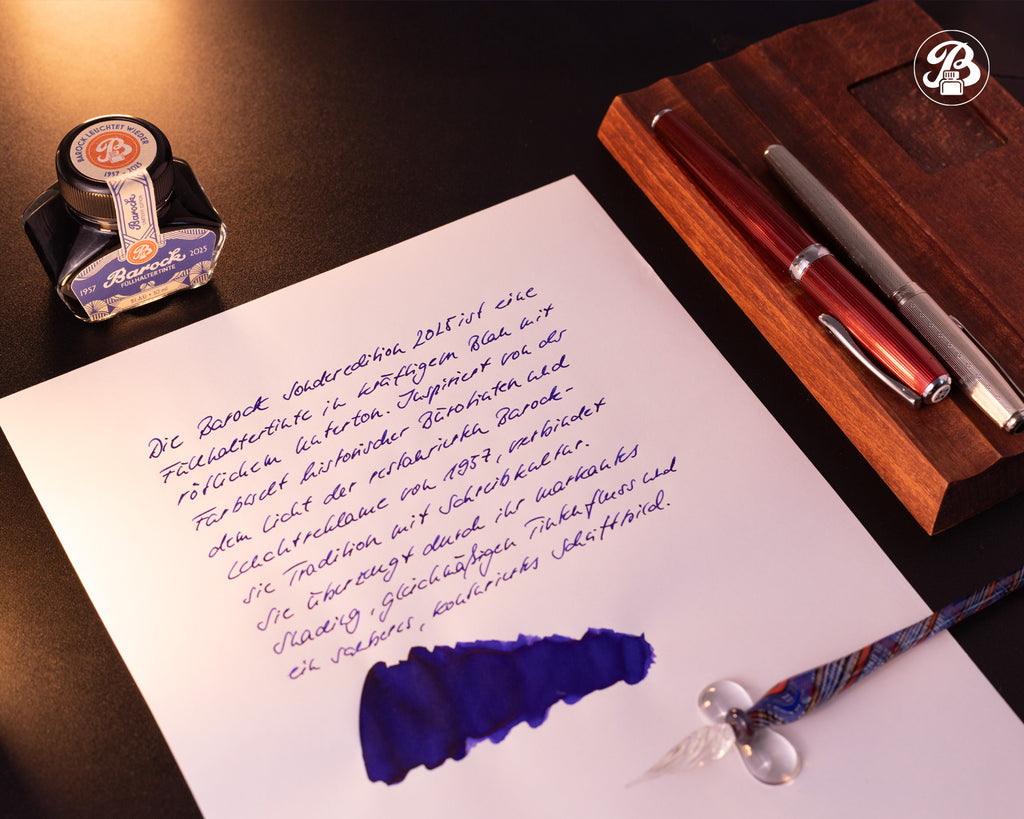 BAROCK LEUCHTET WIEDER
B
1957 - 2025
Barock
Barock
1957
2025
FÜLLHALTERTINTE
BLAU • 50 ml
B
Die Barock Sonderedition 2025 ist eine
Füllhaltertinte in kräftigem Blau mit
rötlichem Unterton. Inspiriert von der
Farbwelt historischer Bürotinten und
dem Licht der restaurierten Barock-
Leuchtreklame von 1957, verbindet
sie Tradition mit Schreibkultur.
Sie überzeugt durch ihr markantes
Shading, gleichmäßigen Tintenfluss und
ein sauberes, konturiertes Schriftbild.